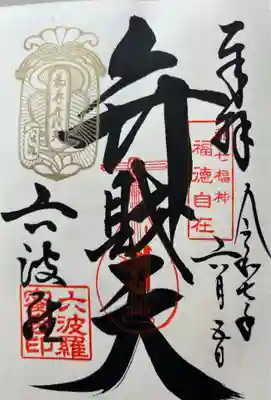 奉拝
令和七年
六月五日
七福神
福徳自在
弁財天
六波羅
六波羅
寶印